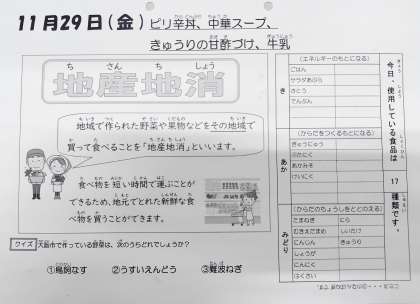 11月29日(金) ピリ辛丼、中華スープ、
きゅうりの甘酢づけ、牛乳
ち さん ち しょう
地産地消
地域で作られた野菜や果物などをその地域で
買って食べることを「地産地消」といいます。
食べ物を短い時間で運ぶことが
できるため、地元でとれた新鮮な食
べ物を買うことができます。
クイズ 大阪市で作っている野菜は、次のうちどれでしょうか？
①鳥飼なす ②うすいえんどう ③難波ねぎ
今日、使用している食品は
17
種類です。
き
(エネルギーのもとになる)
ごはん
サラダあぶら
さとう
でんぷん
あか
(からだをつくるもとになる)
ぎゅうにゅう
ぶたにく
あかみそ
けいにく
みどり
(からだのちょうしをととのえる)
たまねぎ にら
むきえだまめ しいたけ
にんじん きゅうり
しょうが
にんにく
はくさい